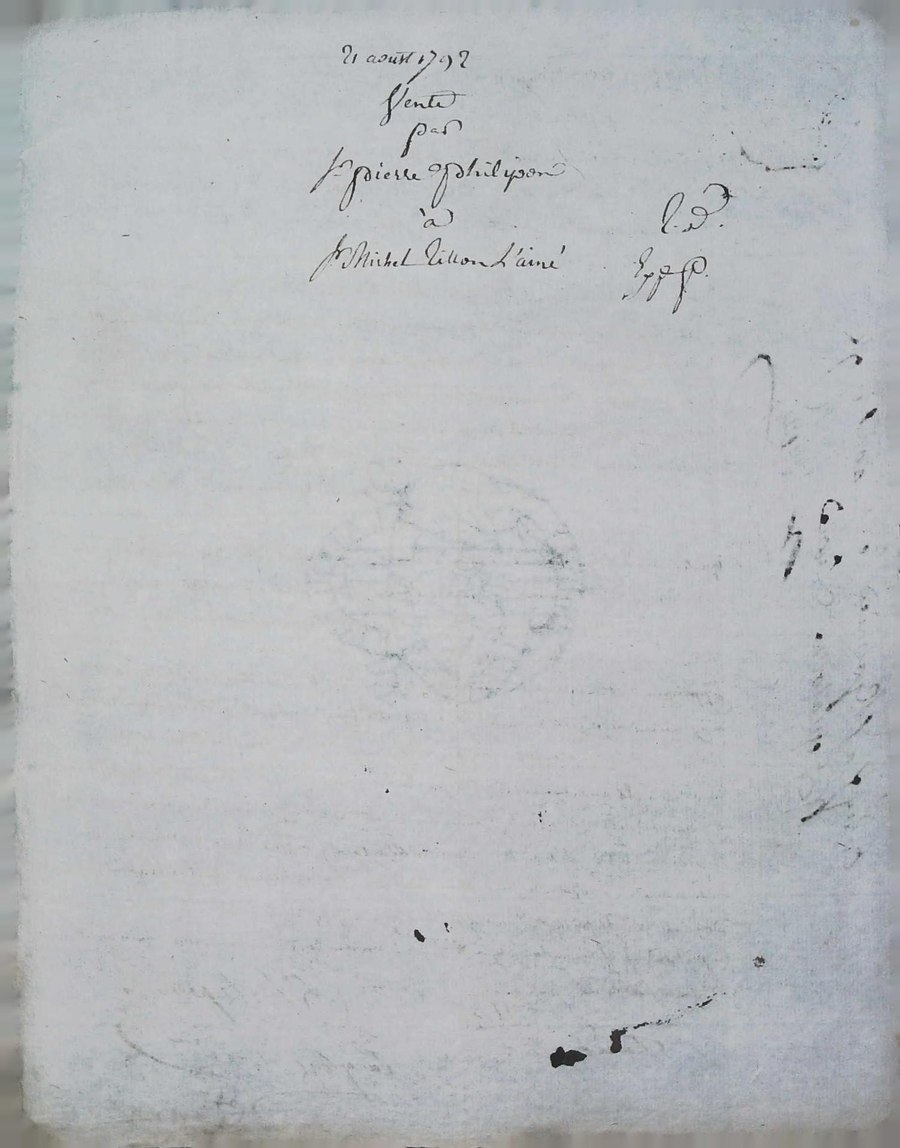 21 aoust 1792
Vente
par
Sr pierre philipon
à
Sr Michel Tillon L'ainé